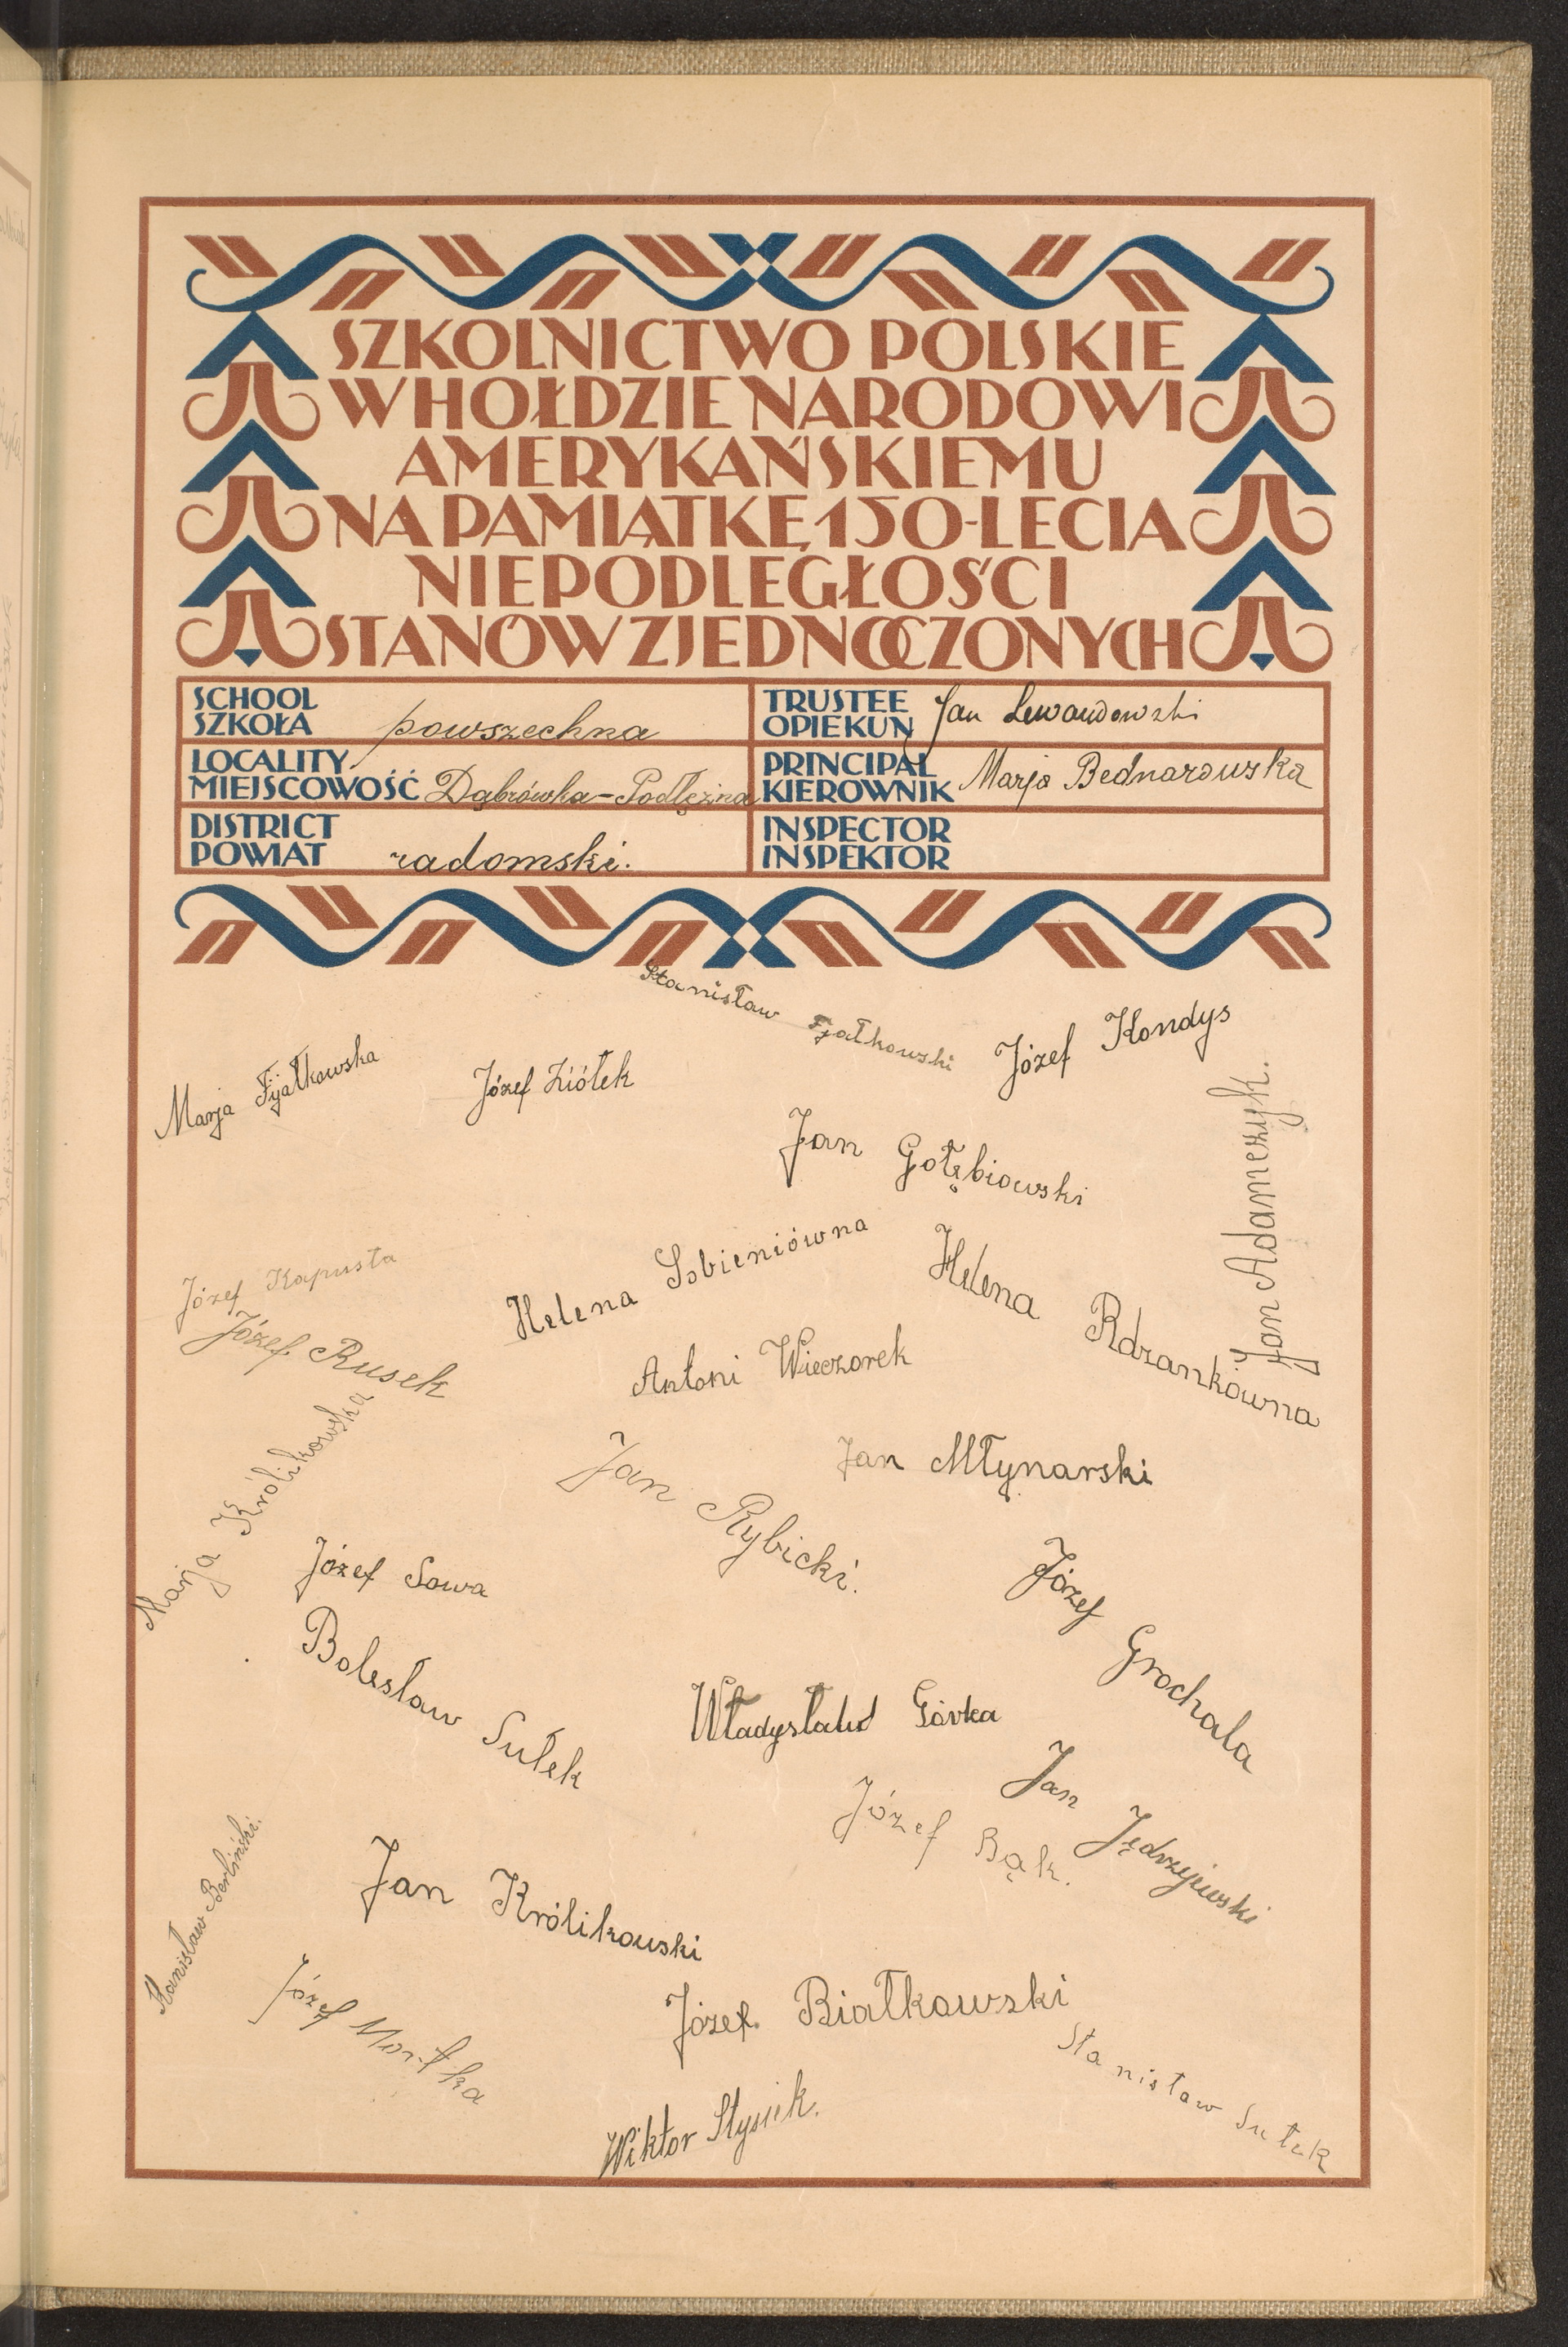 SZKOLNICTWO POLSKIE
W HOŁDZIE NARODOWI
AMERYKAŃSKIEMU
NA PAMIĄTKĘ 150-LECIA
NIEPODLEGŁOŚCI
STANÓW ZJEDNOCZONYCH
SCHOOL
SZKOŁA powszechna
TRUSTEE
OPIEKUN Jan Lewandowski
LOCALITY
MIEJSCOWOŚĆ Dąbrówka-Podłężna
PRINCIPAL
KIEROWNIK Marja Bednarowska
DISTRICT
POWIAT radomski.
INSPECTOR
INSPEKTOR
Stanisław Fjałkowski
Józef Kondys
Marja Fijałkowska
Józef Ziółek
Jan Gołębiowski
Jan Adamczyk.
Józef Kapusta
Helena Sobieniówna
Helena Rdzankówna
Józef Rusek
Antoni Wieczorek
Marja Królikowska
Jan Młynarski
Jan Rybicki.
Józef Sowa
Józef Grochala
Bolesław Sułek
Władysław Górka
Jan Jędrzejewski
Józef Bąk.
Stanisław Berliński.
Jan Królikowski
Józef
Józef. Białkowski
Stanisław Sułek
Wiktor